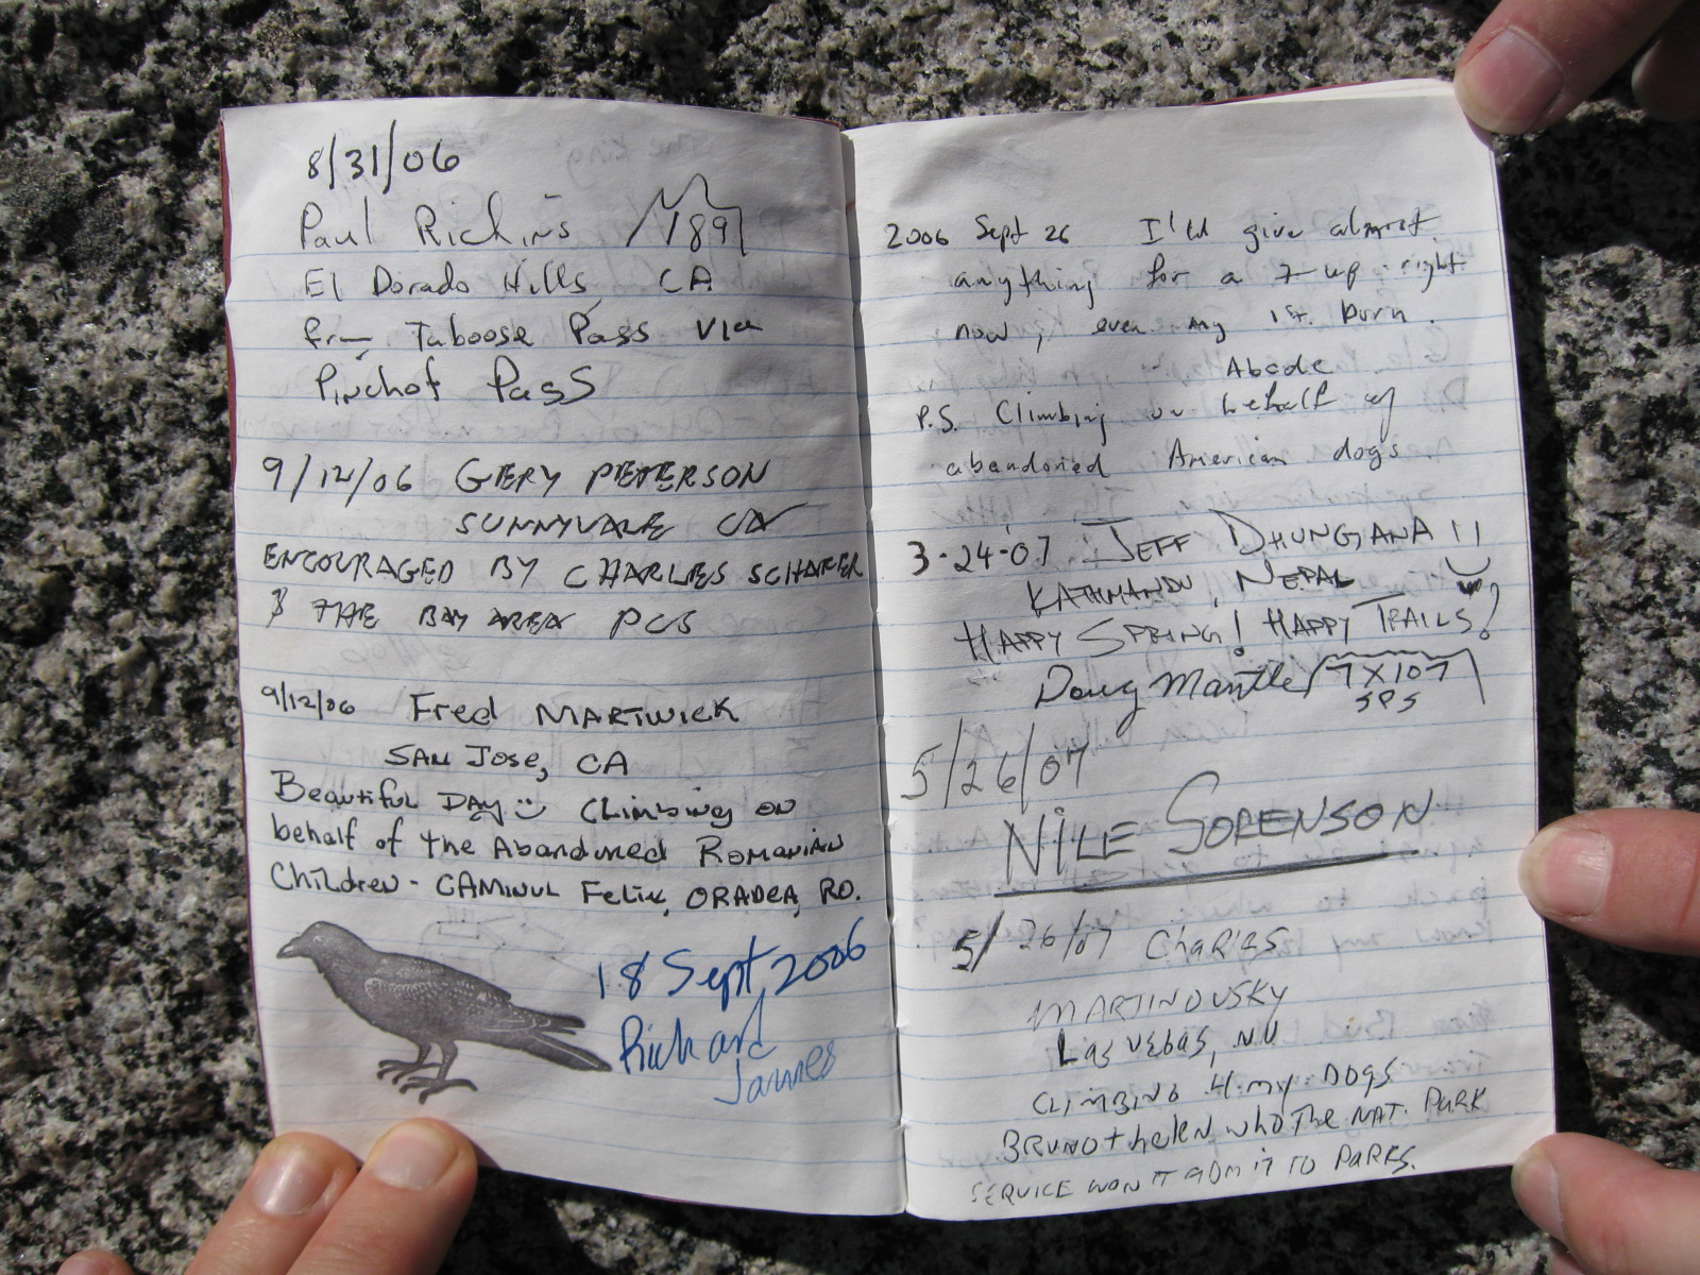 8/31/06
Paul Richins /189
El Dorado Hills, CA
from Taboose Pass via
Pinchot Pass
9/12/06 GERY PETERSON
SUNNYVALE CA
ENCOURAGED BY CHARLES SCHAFER
& THE BAY AREA PCS
9/12/06 Fred MARTWICK
SAN JOSE, CA
Beautiful DAY Climbing on
behalf of the Abandoned ROMANIAN
Children - CAMINUL Felix, ORADEA, RO.
18 Sept 2006
Richard
James
2006 Sept 26 I'ld give almost
anything for a 7-up right
now, even my 1st. born.
Abode
P.S. Climbing on behalf of
abandoned American dogs
3-24-07 JEFF DHUNGANA !!
KATHMANDU, NEPAL
HAPPY SPRING! HAPPY TRAILS!
Doug Mantle 7X107
SPS
5/26/07
NILE SORENSON
5/26/07 CHARLES
MARTINOVSKY
Las VEGAS, NV
CLIMBING 4 my DOGS
BRUNO + helen who The NAT. PARK
SERVICE WON'T ADMIT TO PARKS.